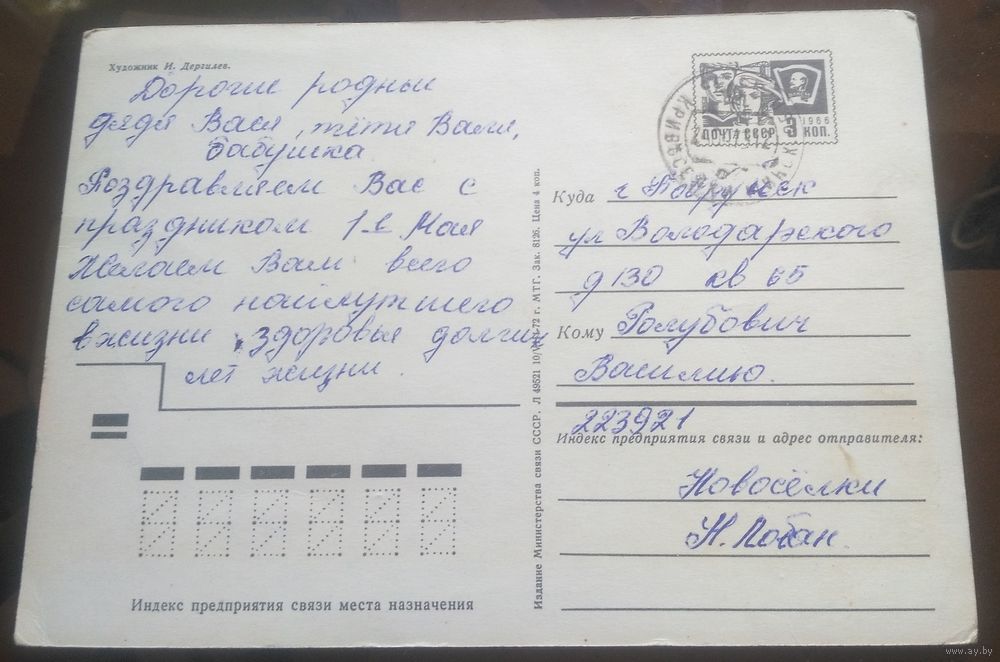 Художник И. Дергилев.
Дорогие родные
дядя Вася, тётя Валя,
бабушка
Поздравляем Вас с
праздником 1-е Мая
Желаем Вам всего
самого наилутшего
в жизни, здоровья долгих
лет жизни.
Индекс предприятия связи места назначения
Издание Министерства связи СССР. Л 49521 10/ -72 г. МТГ. Зак. 8126. Цена 4 коп.
ПОЧТА СССР 3 КОП.
1966
Куда г Бобруйск
ул Володарского
д 130 кв 65
Кому Голубович
Василию.
223921
Индекс предприятия связи и адрес отправителя:
Новосёлки
Н.
www.ay.by